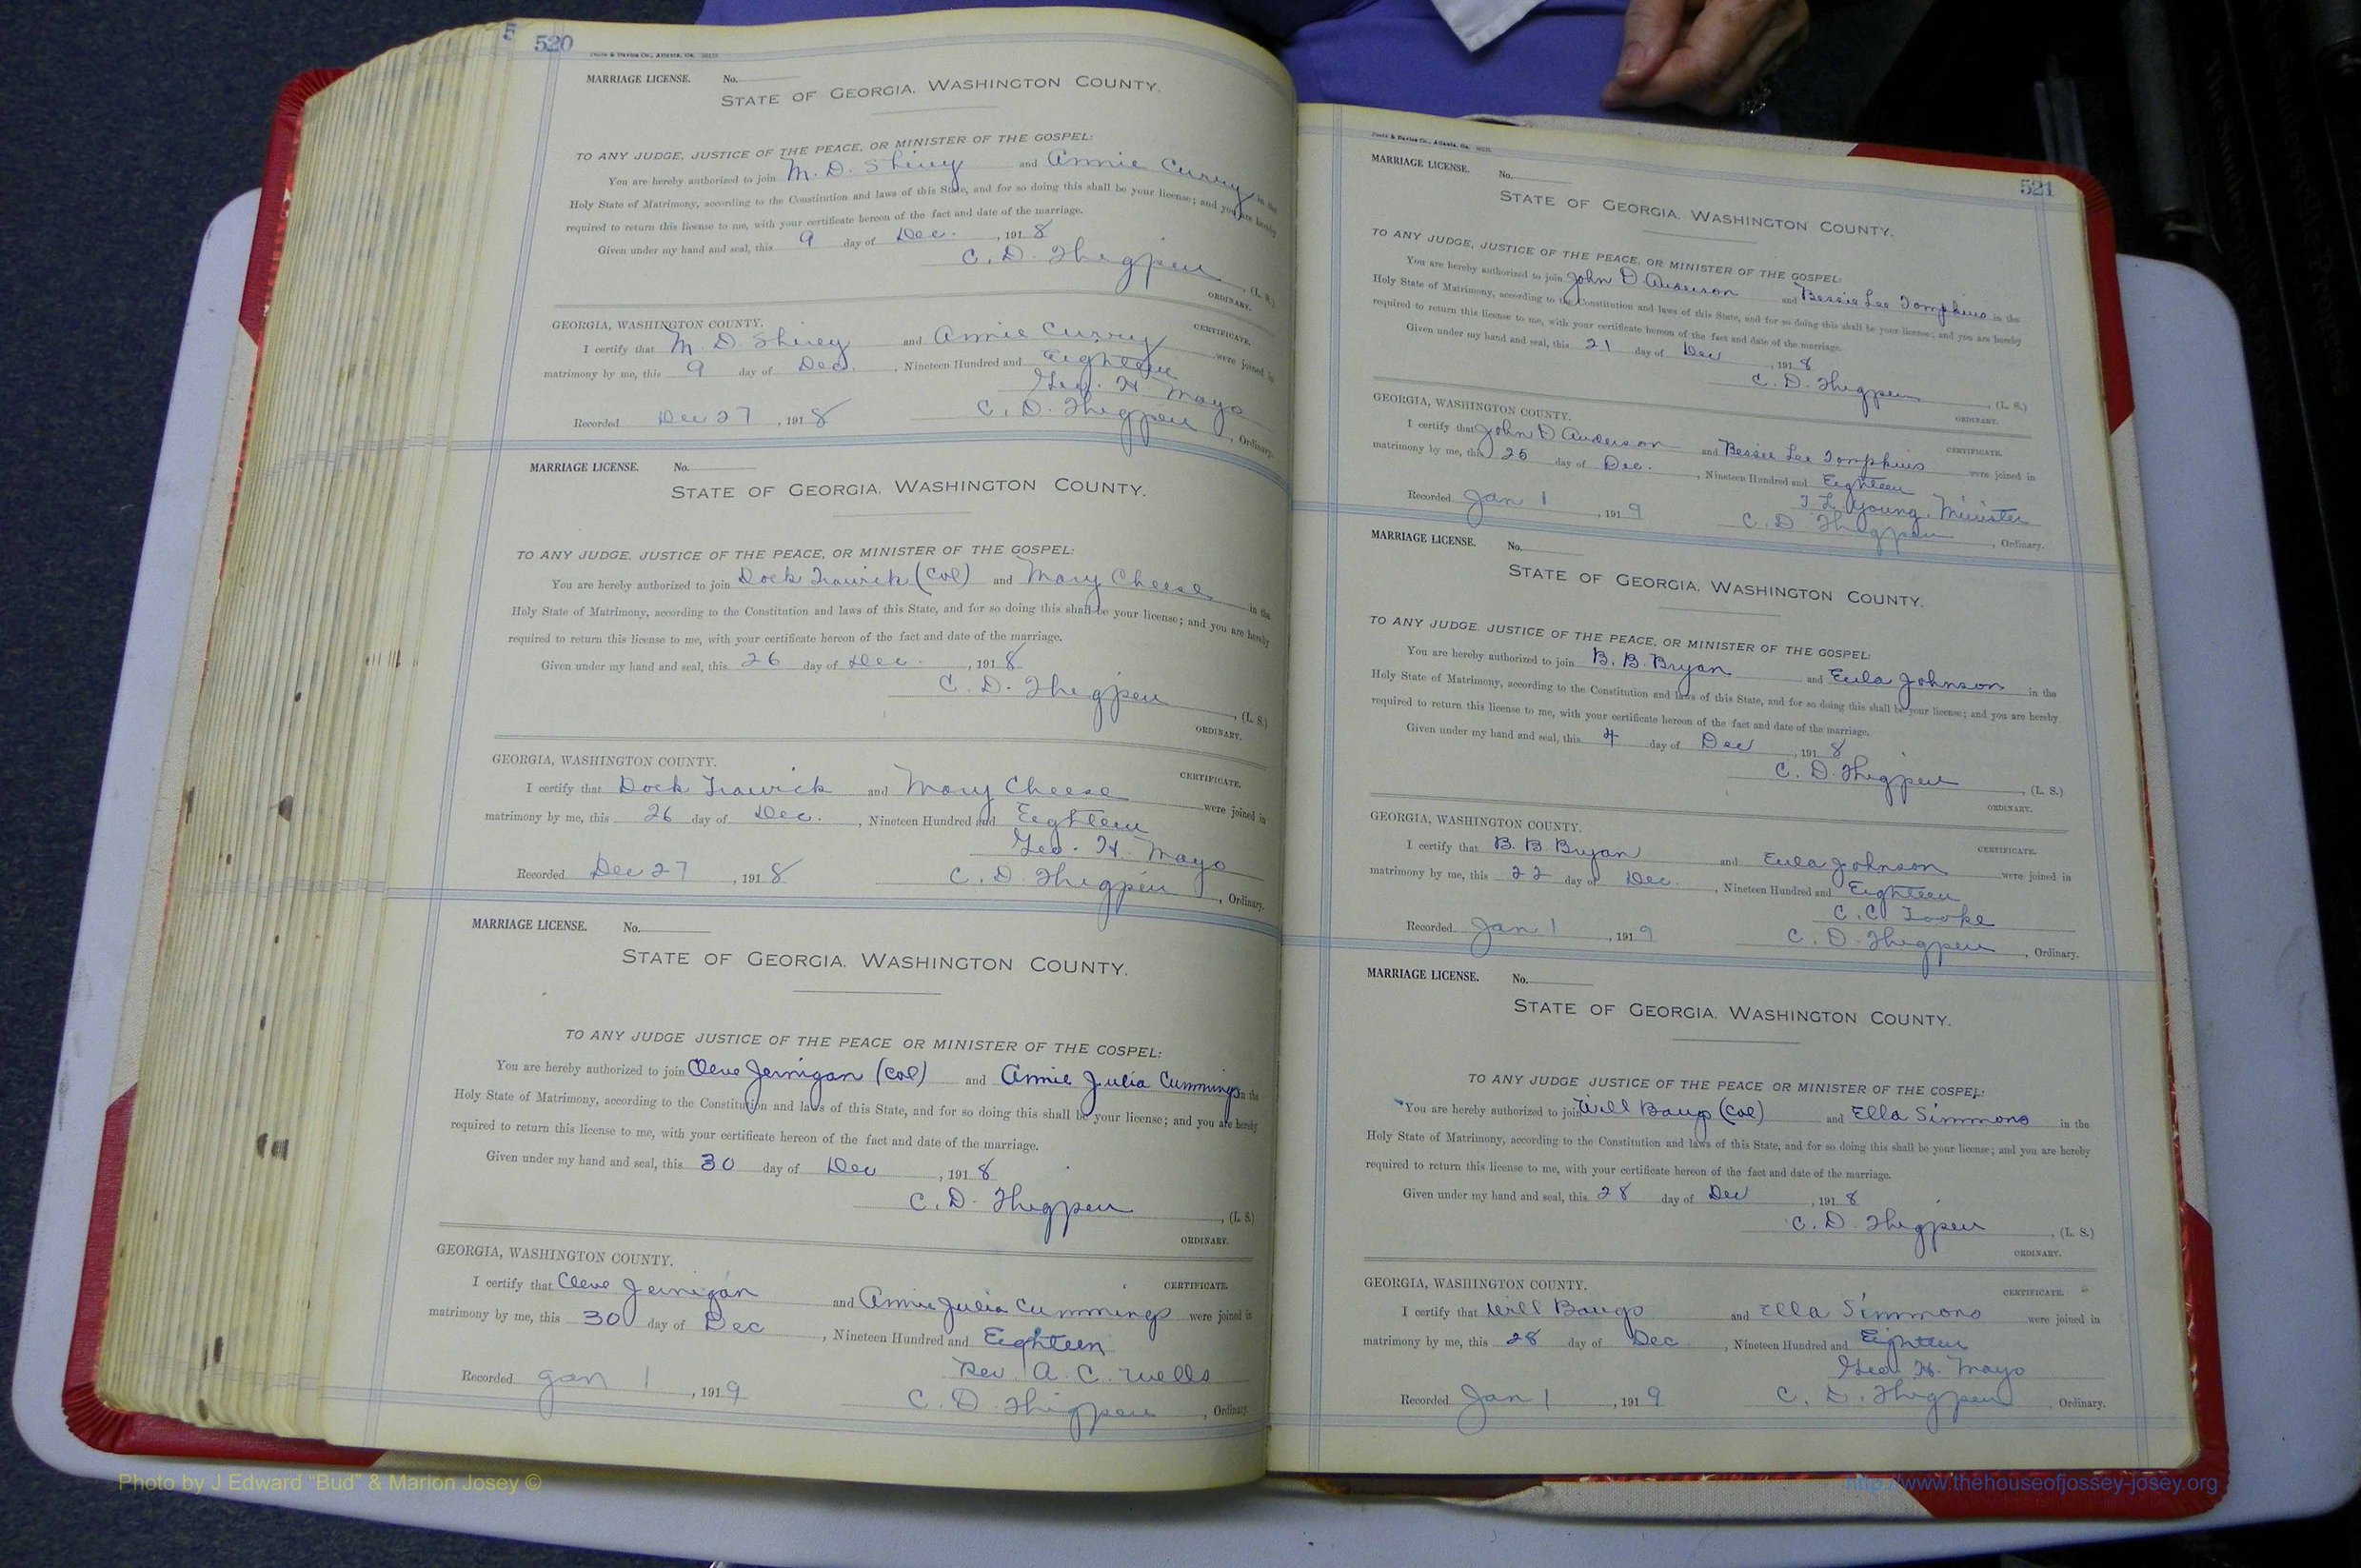 5 520
Foote & Davies Co., Atlanta, Ga.
MARRIAGE LICENSE. No.
STATE OF GEORGIA. WASHINGTON COUNTY.
TO ANY JUDGE, JUSTICE OF THE PEACE, OR MINISTER OF THE GOSPEL:
You are hereby authorized to join M. D. Shirey and Annie Curry in the
Holy State of Matrimony, according to the Constitution and laws of this State, and for so doing this shall be your license; and you are hereby
required to return this license to me, with your certificate hereon of the fact and date of the marriage.
Given under my hand and seal, this 9 day of Dec. , 1918
C. D. Thigpen , (L. S.)
ORDINARY.
GEORGIA, WASHINGTON COUNTY.
CERTIFICATE.
I certify that M D Shirey and Annie Curry were joined in
matrimony by me, this 9 day of Dec. , Nineteen Hundred and Eighteen
Geo. H. Mayo
Recorded Dec 27 , 1918 C. D. Thigpen , Ordinary.
MARRIAGE LICENSE. No.
STATE OF GEORGIA. WASHINGTON COUNTY.
TO ANY JUDGE. JUSTICE OF THE PEACE, OR MINISTER OF THE GOSPEL:
You are hereby authorized to join Dock Trawick (Col) and Mary Cheese in the
Holy State of Matrimony, according to the Constitution and laws of this State, and for so doing this shall be your license; and you are hereby
required to return this license to me, with your certificate hereon of the fact and date of the marriage.
Given under my hand and seal, this 26 day of Dec. , 1918
C. D. Thigpen , (L. S.)
ORDINARY.
GEORGIA, WASHINGTON COUNTY.
CERTIFICATE.
I certify that Dock Trawick and Mary Cheese were joined in
matrimony by me, this 26 day of Dec. , Nineteen Hundred and Eighteen
Geo. H. Mayo
Recorded Dec 27 , 1918 C. D. Thigpen , Ordinary.
MARRIAGE LICENSE. No.
STATE OF GEORGIA. WASHINGTON COUNTY.
TO ANY JUDGE JUSTICE OF THE PEACE OR MINISTER OF THE GOSPEL:
You are hereby authorized to join Cleve Jernigan (Col) and Annie Julia Cummings in the
Holy State of Matrimony, according to the Constitution and laws of this State, and for so doing this shall be your license; and you are hereby
required to return this license to me, with your certificate hereon of the fact and date of the marriage.
Given under my hand and seal, this 30 day of Dec , 1918
C. D. Thigpen , (L. S.)
ORDINARY.
GEORGIA, WASHINGTON COUNTY.
CERTIFICATE.
I certify that Cleve Jernigan and Annie Julia Cummings were joined in
matrimony by me, this 30 day of Dec , Nineteen Hundred and Eighteen
Rev. A. C. Wells
Recorded Jan 1 , 1919 C. D. Thigpen , Ordinary.
Foote & Davies Co., Atlanta, Ga.
521
MARRIAGE LICENSE. No.
STATE OF GEORGIA. WASHINGTON COUNTY.
TO ANY JUDGE, JUSTICE OF THE PEACE, OR MINISTER OF THE GOSPEL:
You are hereby authorized to join John D Anderson and Bessie Lee Tompkins in the
Holy State of Matrimony, according to the Constitution and laws of this State, and for so doing this shall be your license; and you are hereby
required to return this license to me, with your certificate hereon of the fact and date of the marriage.
Given under my hand and seal, this 21 day of Dec , 1918
C. D. Thigpen , (L. S.)
ORDINARY.
GEORGIA, WASHINGTON COUNTY.
CERTIFICATE.
I certify that John D Anderson and Bessie Lee Tompkins were joined in
matrimony by me, this 25 day of Dec. , Nineteen Hundred and Eighteen
T L Young, Minister
Recorded Jan 1 , 1919 C. D Thigpen , Ordinary.
MARRIAGE LICENSE. No.
STATE OF GEORGIA. WASHINGTON COUNTY.
TO ANY JUDGE. JUSTICE OF THE PEACE, OR MINISTER OF THE GOSPEL:
You are hereby authorized to join B. B. Bryan and Eula Johnson in the
Holy State of Matrimony, according to the Constitution and laws of this State, and for so doing this shall be your license; and you are hereby
required to return this license to me, with your certificate hereon of the fact and date of the marriage.
Given under my hand and seal, this 4 day of Dec , 1918
C. D. Thigpen , (L. S.)
ORDINARY.
GEORGIA, WASHINGTON COUNTY.
CERTIFICATE.
I certify that B. B Bryan and Eula Johnson were joined in
matrimony by me, this 22 day of Dec. , Nineteen Hundred and Eighteen
C. C. Tooke
Recorded Jan 1 , 1919 C. D. Thigpen , Ordinary.
MARRIAGE LICENSE. No.
STATE OF GEORGIA. WASHINGTON COUNTY.
TO ANY JUDGE JUSTICE OF THE PEACE OR MINISTER OF THE GOSPEL:
You are hereby authorized to join Will Baugs (Col) and Ella Simmons in the
Holy State of Matrimony, according to the Constitution and laws of this State, and for so doing this shall be your license; and you are hereby
required to return this license to me, with your certificate hereon of the fact and date of the marriage.
Given under my hand and seal, this 28 day of Dec , 1918
C. D. Thigpen , (L. S.)
ORDINARY.
GEORGIA, WASHINGTON COUNTY.
CERTIFICATE.
I certify that Will Baugs and Ella Simmons were joined in
matrimony by me, this 28 day of Dec , Nineteen Hundred and Eighteen
Geo. H. Mayo
Recorded Jan 1 , 1919 C. D. Thigpen Ordinary.
Photo by J Edward "Bud" & Marion Josey ©
http://www.thehouseofjossey-josey.org